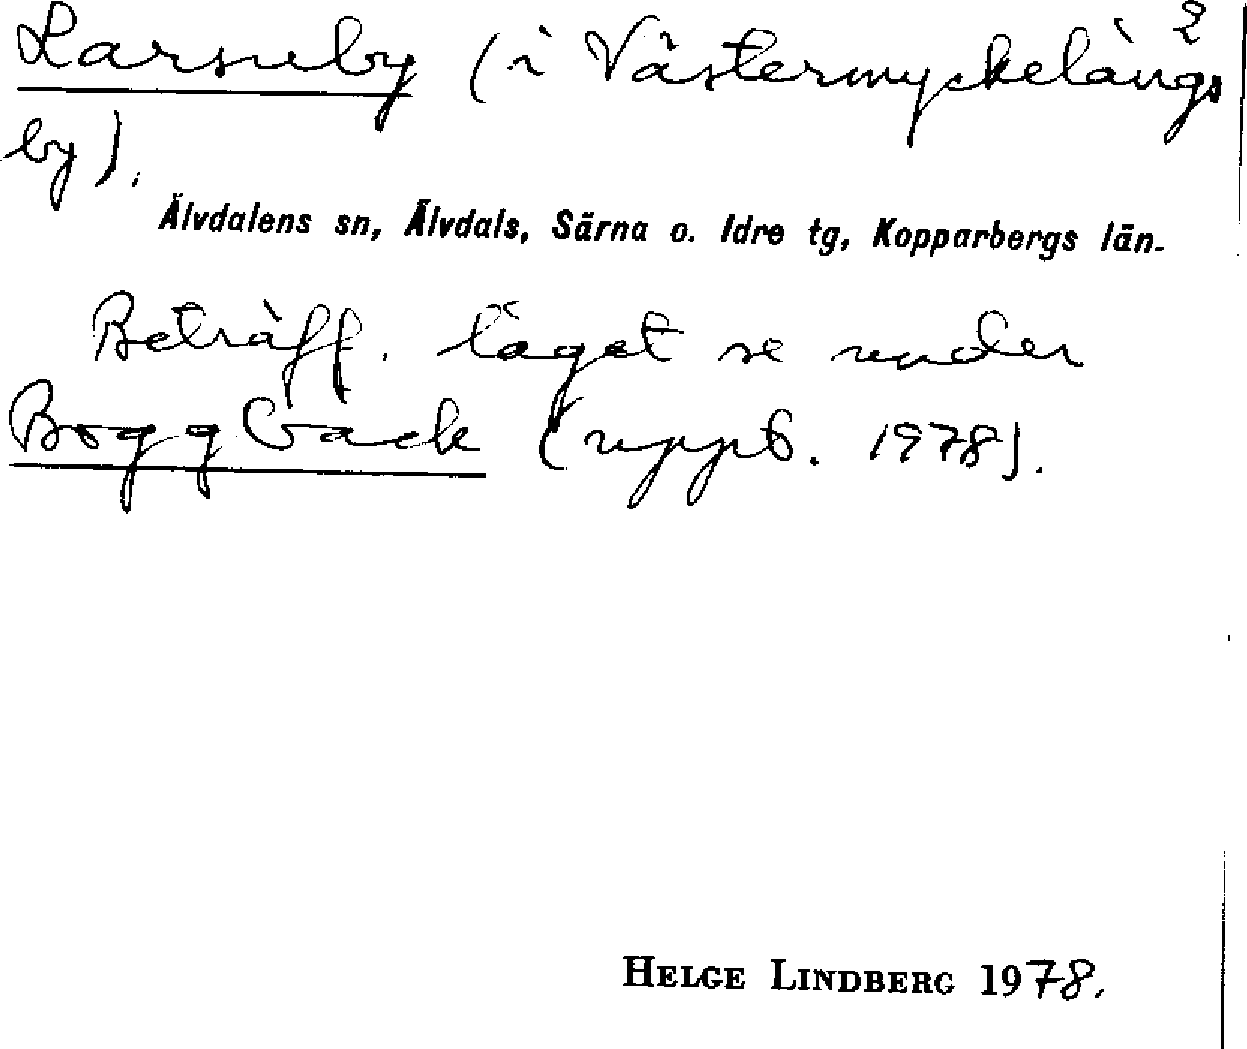 Larsneby (i Västermyckeläng 2
by).
Älvdalens sn, Älvdals, Särna o. Idre tg, Kopparbergs län.
Beträff. läget se under
Boggback (uppt. 1978).
HELGE LINDBERG 1978.